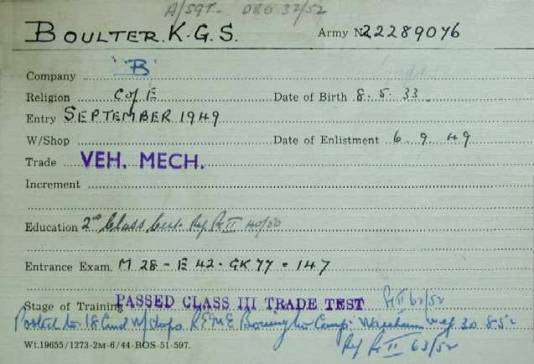 A/SGT. ORO 32/52
BOULTER. K.G.S. Army No 22289076
Company "B"
Religion C of E Date of Birth 8. 5. 33
Entry SEPTEMBER 1949
W/Shop Date of Enlistment 6. 9. 49
Trade VEH. MECH.
Increment
Education 2nd Class Cert. Ref Pt II 40/50
Entrance Exam. M 28 - E 42 - GK 77 = 147
Stage of Training PASSED CLASS III TRADE TEST Pt II 62/52
Posted to 18 Cmd W/shops. R.E.M.E. Camp. Wareham 30. 8. 52
Wt.19655/1273-2m-6/44-BOS-51-597. Ref Pt II 63/52